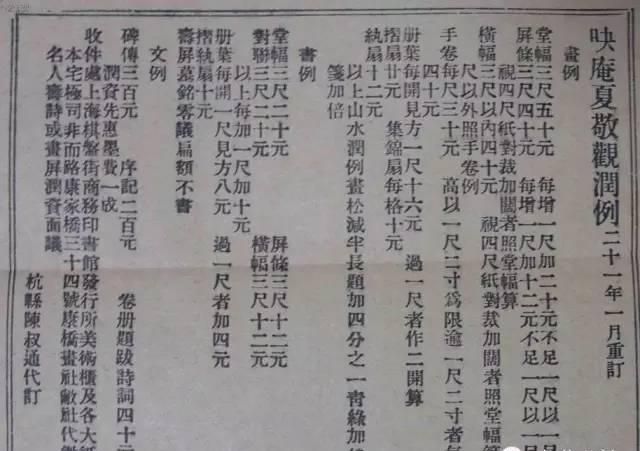 吷庵夏敬觀潤例 二十一年一月重訂
畫例
堂幅三尺五十元 每增一尺加二十元不足一尺以一
屏條三尺四十元 每增一尺加十二元不足一尺以一
視四尺紙對裁加闊者照堂幅算
橫幅三尺以內四十元 視四尺紙對裁加闊者照堂幅算
尺以外照手卷例
手卷每尺三十元 高以一尺二寸爲限逾一尺二寸者每
四十元
册葉每開見方一尺十六元 過一尺者作二開算
摺扇廿元 集錦扇每格十元
紈扇十二元
以上山水潤例畫松減半長題加四分之一青綠加
箋加倍
書例
堂幅三尺二十元 屏條三尺十二元
對聯三尺二十元 橫幅三尺十二元
以上每加一尺加十元
册葉每開一尺見方八元 過一尺者加四元
摺紈扇十元
壽屏墓銘零議扁額不書
文例
碑傳三百元 序記二百元 卷册題跋詩詞四十元
潤資先惠墨費一成
收件處上海棋盤街商務印書館發行所美術櫃及各大紙
本宅極司非而路康家橋三十四號康橋畫社敝社代
名人壽詩或畫屏潤資面議
杭縣陳叔通代訂